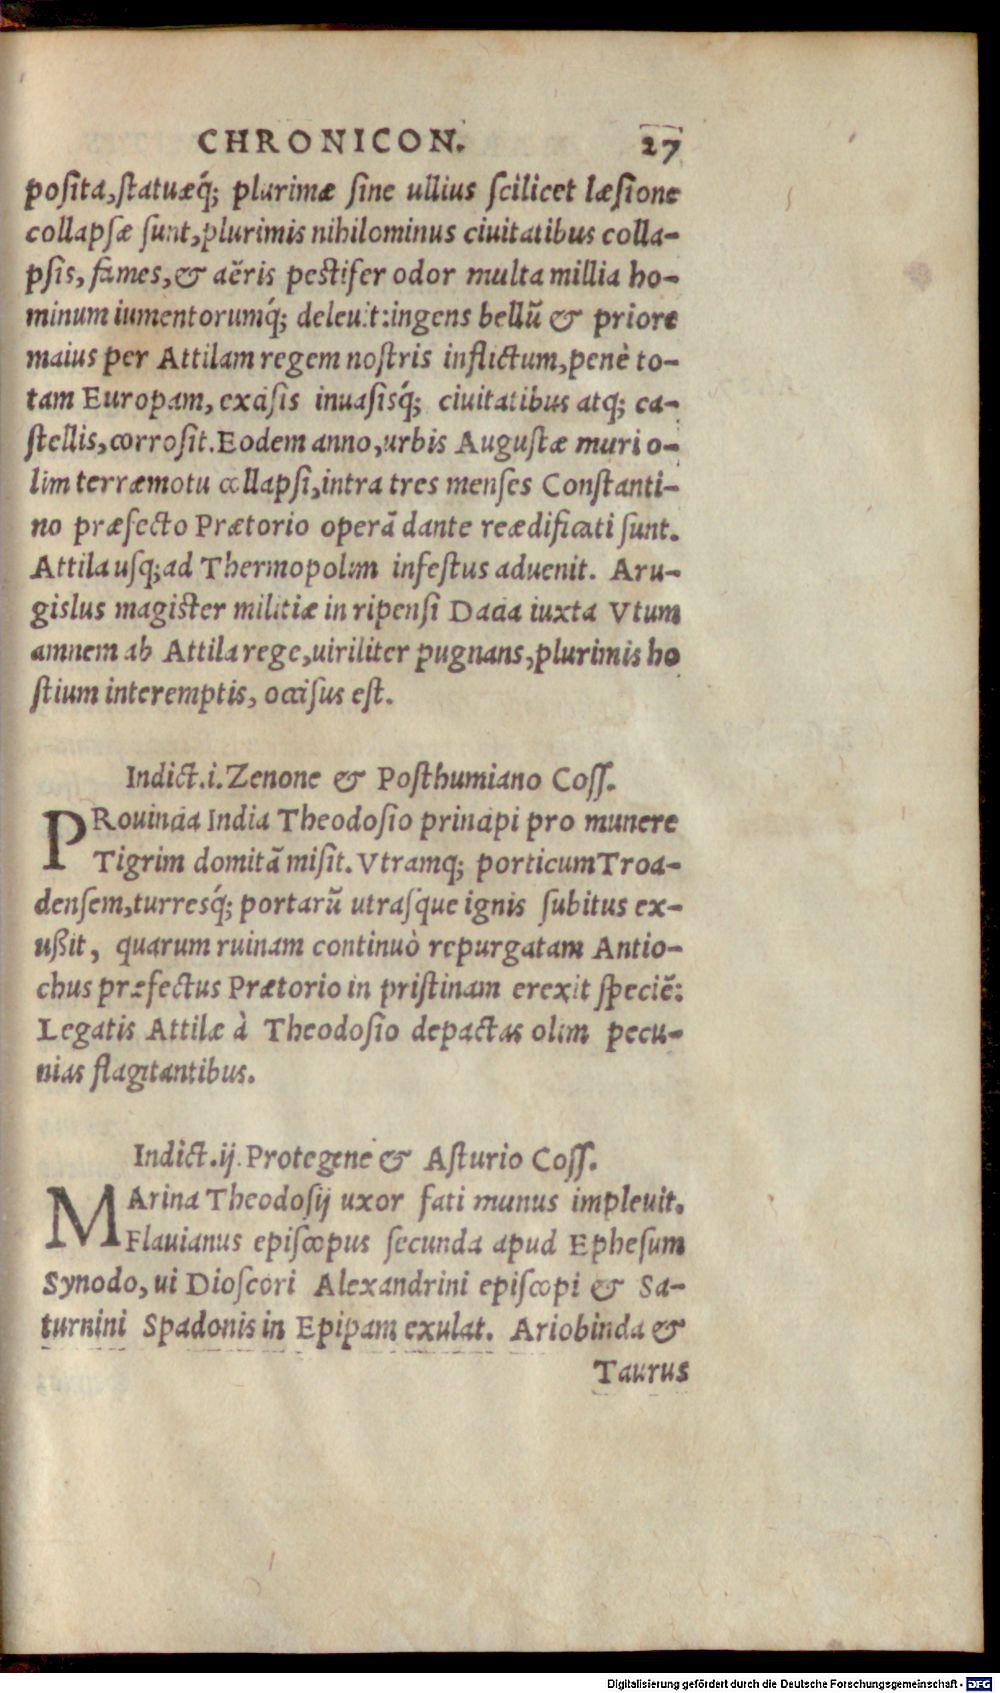 CHRONICON. 27
posita, statuæq́; plurimæ sine ullius scilicet læsione
collapsæ sunt, plurimis nihilominus ciuitatibus colla-
psis, fames, & aëris pestifer odor multa millia ho-
minum iumentorumq́; deleuit: ingens bellũ & priore
maius per Attilam regem nostris inflictum, penè to-
tam Europam, excisis inuasisq́; ciuitatibus atq; ca-
stellis, corrosit. Eodem anno, urbis Augustæ muri o-
lim terræmotu collapsi, intra tres menses Constanti-
no præfecto Prætorio operã dante reædificati sunt.
Attila usq; ad Thermopolim infestus aduenit. Aru-
gislus magister militiæ in ripensi Dacia iuxta Vtum
amnem ab Attila rege, uiriliter pugnans, plurimis ho
stium interemptis, occisus est.
Indict. i. Zenone & Posthumiano Coss.
PRouincia India Theodosio principi pro munere
Tigrim domitã misit. Vtramq; porticum Troa-
densem, turresq́; portarũ utrasque ignis subitus ex-
ußit, quarum ruinam continuò repurgatam Antio-
chus præfectus Prætorio in pristinam erexit speciẽ:
Legatis Attilæ à Theodosio depactas olim pecu-
nias flagitantibus.
Indict. ij. Protegene & Asturio Coss.
MArina Theodosij uxor fati munus impleuit.
Flauianus episcopus secunda apud Ephesum
Synodo, ui Dioscori Alexandrini episcopi & Sa-
turnini Spadonis in Epipam exulat. Ariobinda &
Taurus
Digitalisierung gefördert durch die Deutsche Forschungsgemeinschaft - DFG